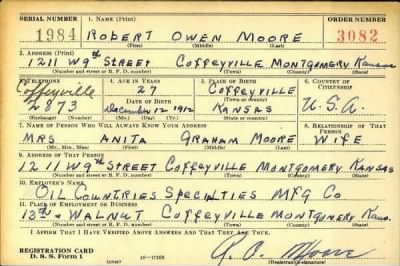 SERIAL NUMBER 1. NAME (Print) ORDER NUMBER
1984 ROBERT OWEN MOORE 3082
(First) (Middle) (Last)
2. ADDRESS (Print)
1211 W 9th STREET COFFEYVILLE MONTGOMERY KANSAS
(Number and street or R. F. D. number) (Town) (County) (State)
3. TELEPHONE 4. AGE IN YEARS 5. PLACE OF BIRTH 6. COUNTRY OF CITIZENSHIP
Coffeyville 27 COFFEYVILLE
(Town or county)
2873 DATE OF BIRTH KANSAS U.S.A.
December 12 1912
(Exchange) (Number) (Mo.) (Day) (Yr.) (State or country)
7. NAME OF PERSON WHO WILL ALWAYS KNOW YOUR ADDRESS 8. RELATIONSHIP OF THAT PERSON
MRS ANITA GRAHAM MOORE WIFE
(Mr., Mrs., Miss) (First) (Middle) (Last)
9. ADDRESS OF THAT PERSON
1211 W 9th STREET COFFEYVILLE MONTGOMERY KANSAS
(Number and street or R. F. D. number) (Town) (County) (State)
10. EMPLOYER'S NAME
OIL COUNTRIES SPECIALTIES MFG CO
11. PLACE OF EMPLOYMENT OR BUSINESS
13th & WALNUT COFFEYVILLE MONTGOMERY KANS.
(Number and street or R. F. D. number) (Town) (County) (State)
I AFFIRM THAT I HAVE VERIFIED ABOVE ANSWERS AND THAT THEY ARE TRUE.
REGISTRATION CARD
D. S. S. Form 1 (over) R. O. Moore
(Registrant's signature)